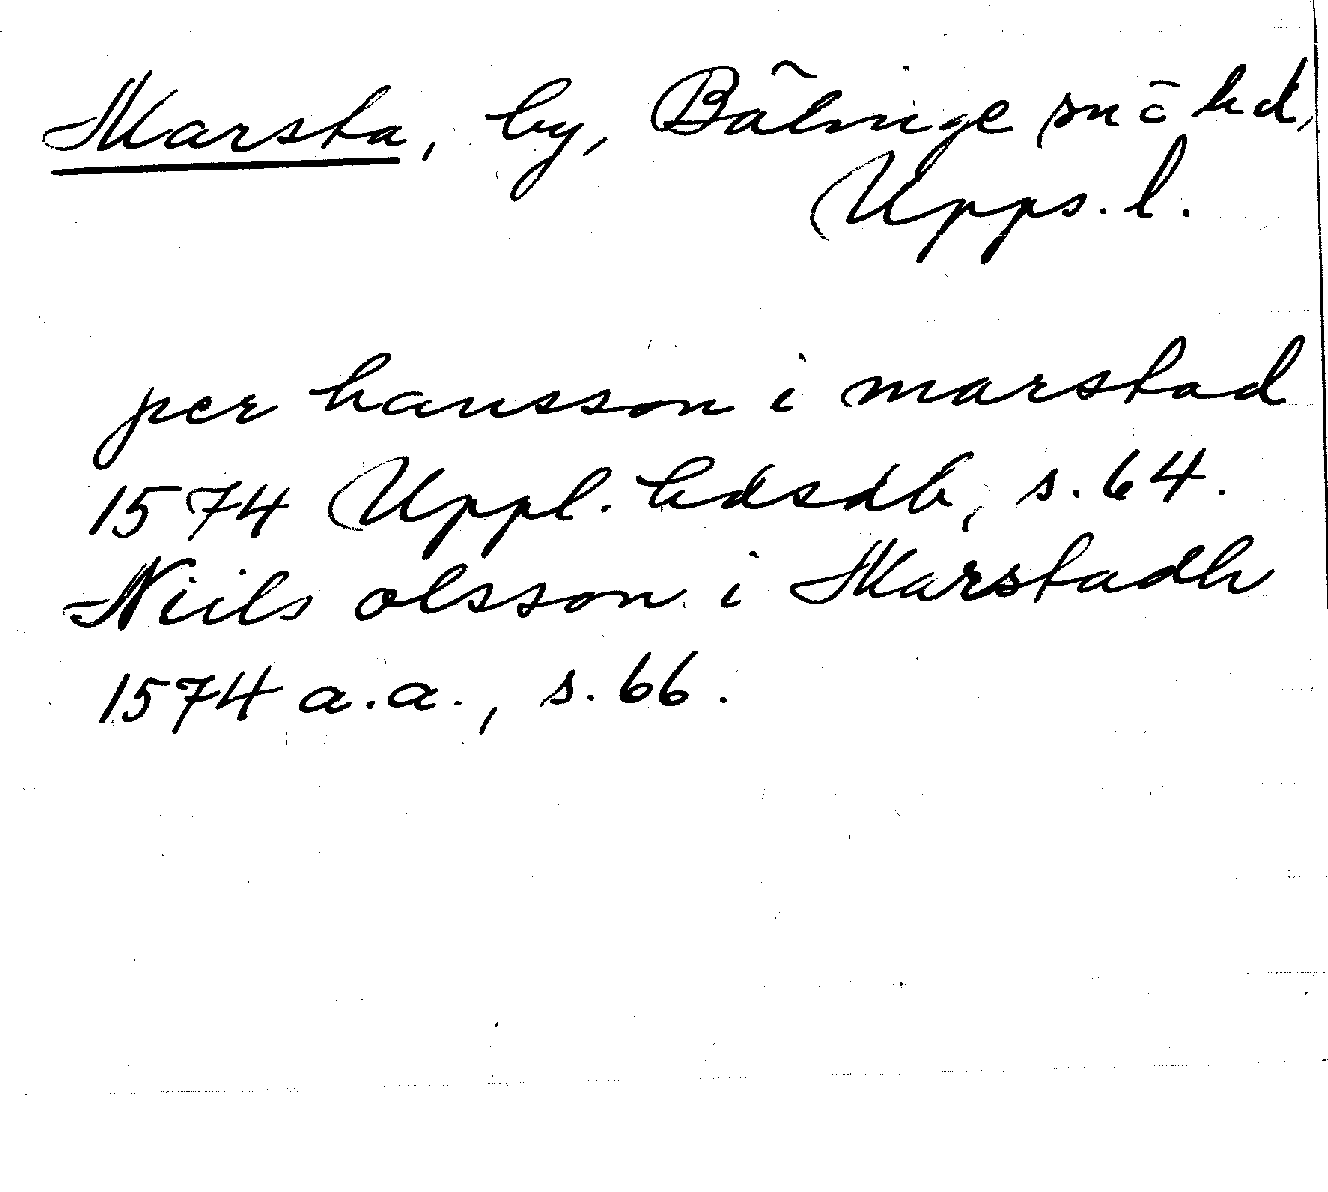 Marsta, by, Bälinge sn o hd,
Upps. l.
per hansson i marstad
1574 Uppl. hdsdb, s. 64.
Niils olsson i Marstadh
1574 a.a., s. 66.